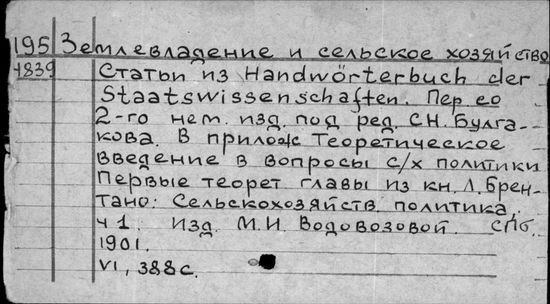 195 Землевладение и сельское хозяйство
4839 Статьи из Handwörterbuch der
Staatswissenschaften. Пер со
2-го нем. изд. под ред. С.Н. Булга-
кова. В прилож Теоретическое
введение в вопросы с/х политики
Первые теорет главы из кн. Л. Брен-
тано: Сельскохозяйств. политика,
ч 1. Изд. М.И. Водовозовой. СПб.
1901.
VI, 388 с.